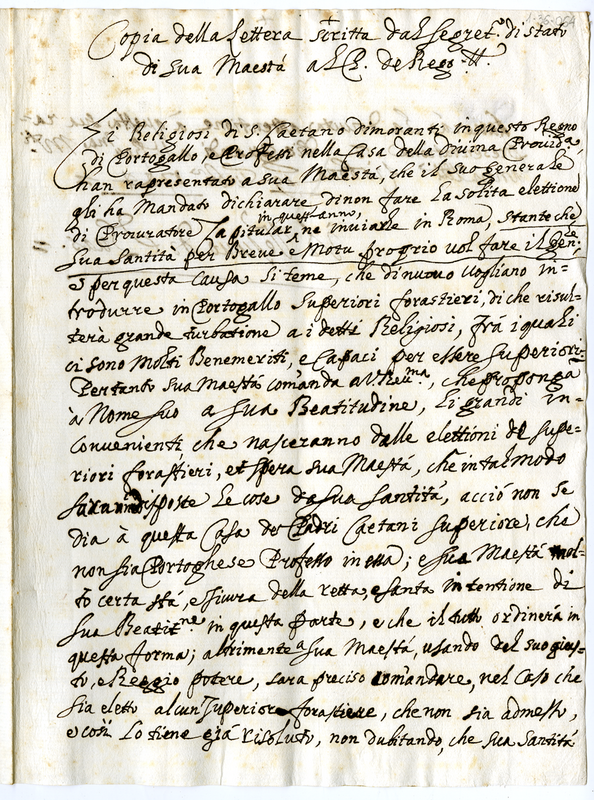 Copia della Lettera scritta dal Segret.º di stato
di Sua Maestá al
Li Religiosi di S. Caetano dimoranti in questo Regno
di Portogallo, e Professi nella Casa della divina Provid.ª,
han rapresentato a sua Maestá, che il suo Generale
gli ha Mandato dichiarare, di non fare la solita elettione
di Procuratore Capitular, ne inviarle in Roma, stante che
in quest'anno,
Sua Santitá per Breve è Motu proprio vol fare il Gen:le
e per questa Causa si teme, che di nuovo vogliano in=
trodurre in Portogallo Superiori forastieri, di che risul=
terà grande turbatione a i detti Religiosi, frá i quali
ci sono Molti Benemeriti, e Capaci per essere Superiori.
Pertanto Sua Maestá comanda a V. Rev.ma, che proponga
à Nome suo a Sua Beatitudine, li grandi in=
convenienti che nasceranno dalle elettioni di Supe=
riori forastieri, et spera sua Maestá, che in tal modo
disposte le cose da sua Santitá, acció non se
dia à questa Casa de Padri Caetani Superiore, che
non sia Portoghese Professo in essa; e sua Maestá mol=
to certa stá, e sicura della retta, e santa intentione di
Sua Beatit.ne in questa parte, e che il tutto ordinerà in
questa forma; altrimente a sua Maestá, usando del suo gius=
to, e Reggio potere, sara preciso comandare, nel caso che
sia eletto alcun Superiore forastiere, che non sia admesso,
e cosi lo tiene gia risoluto, non dubitando, che sua Santitá